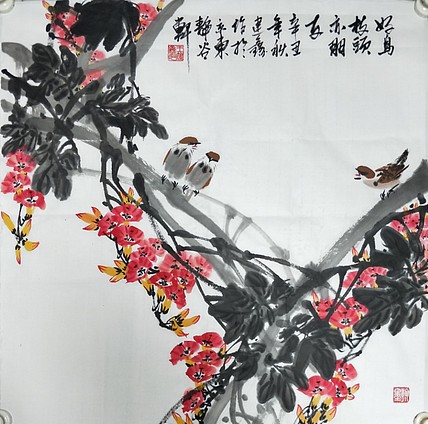 好鳥
枝頭
亦朋
友
辛丑
年秋
建
作於
京東
靜谷
軒